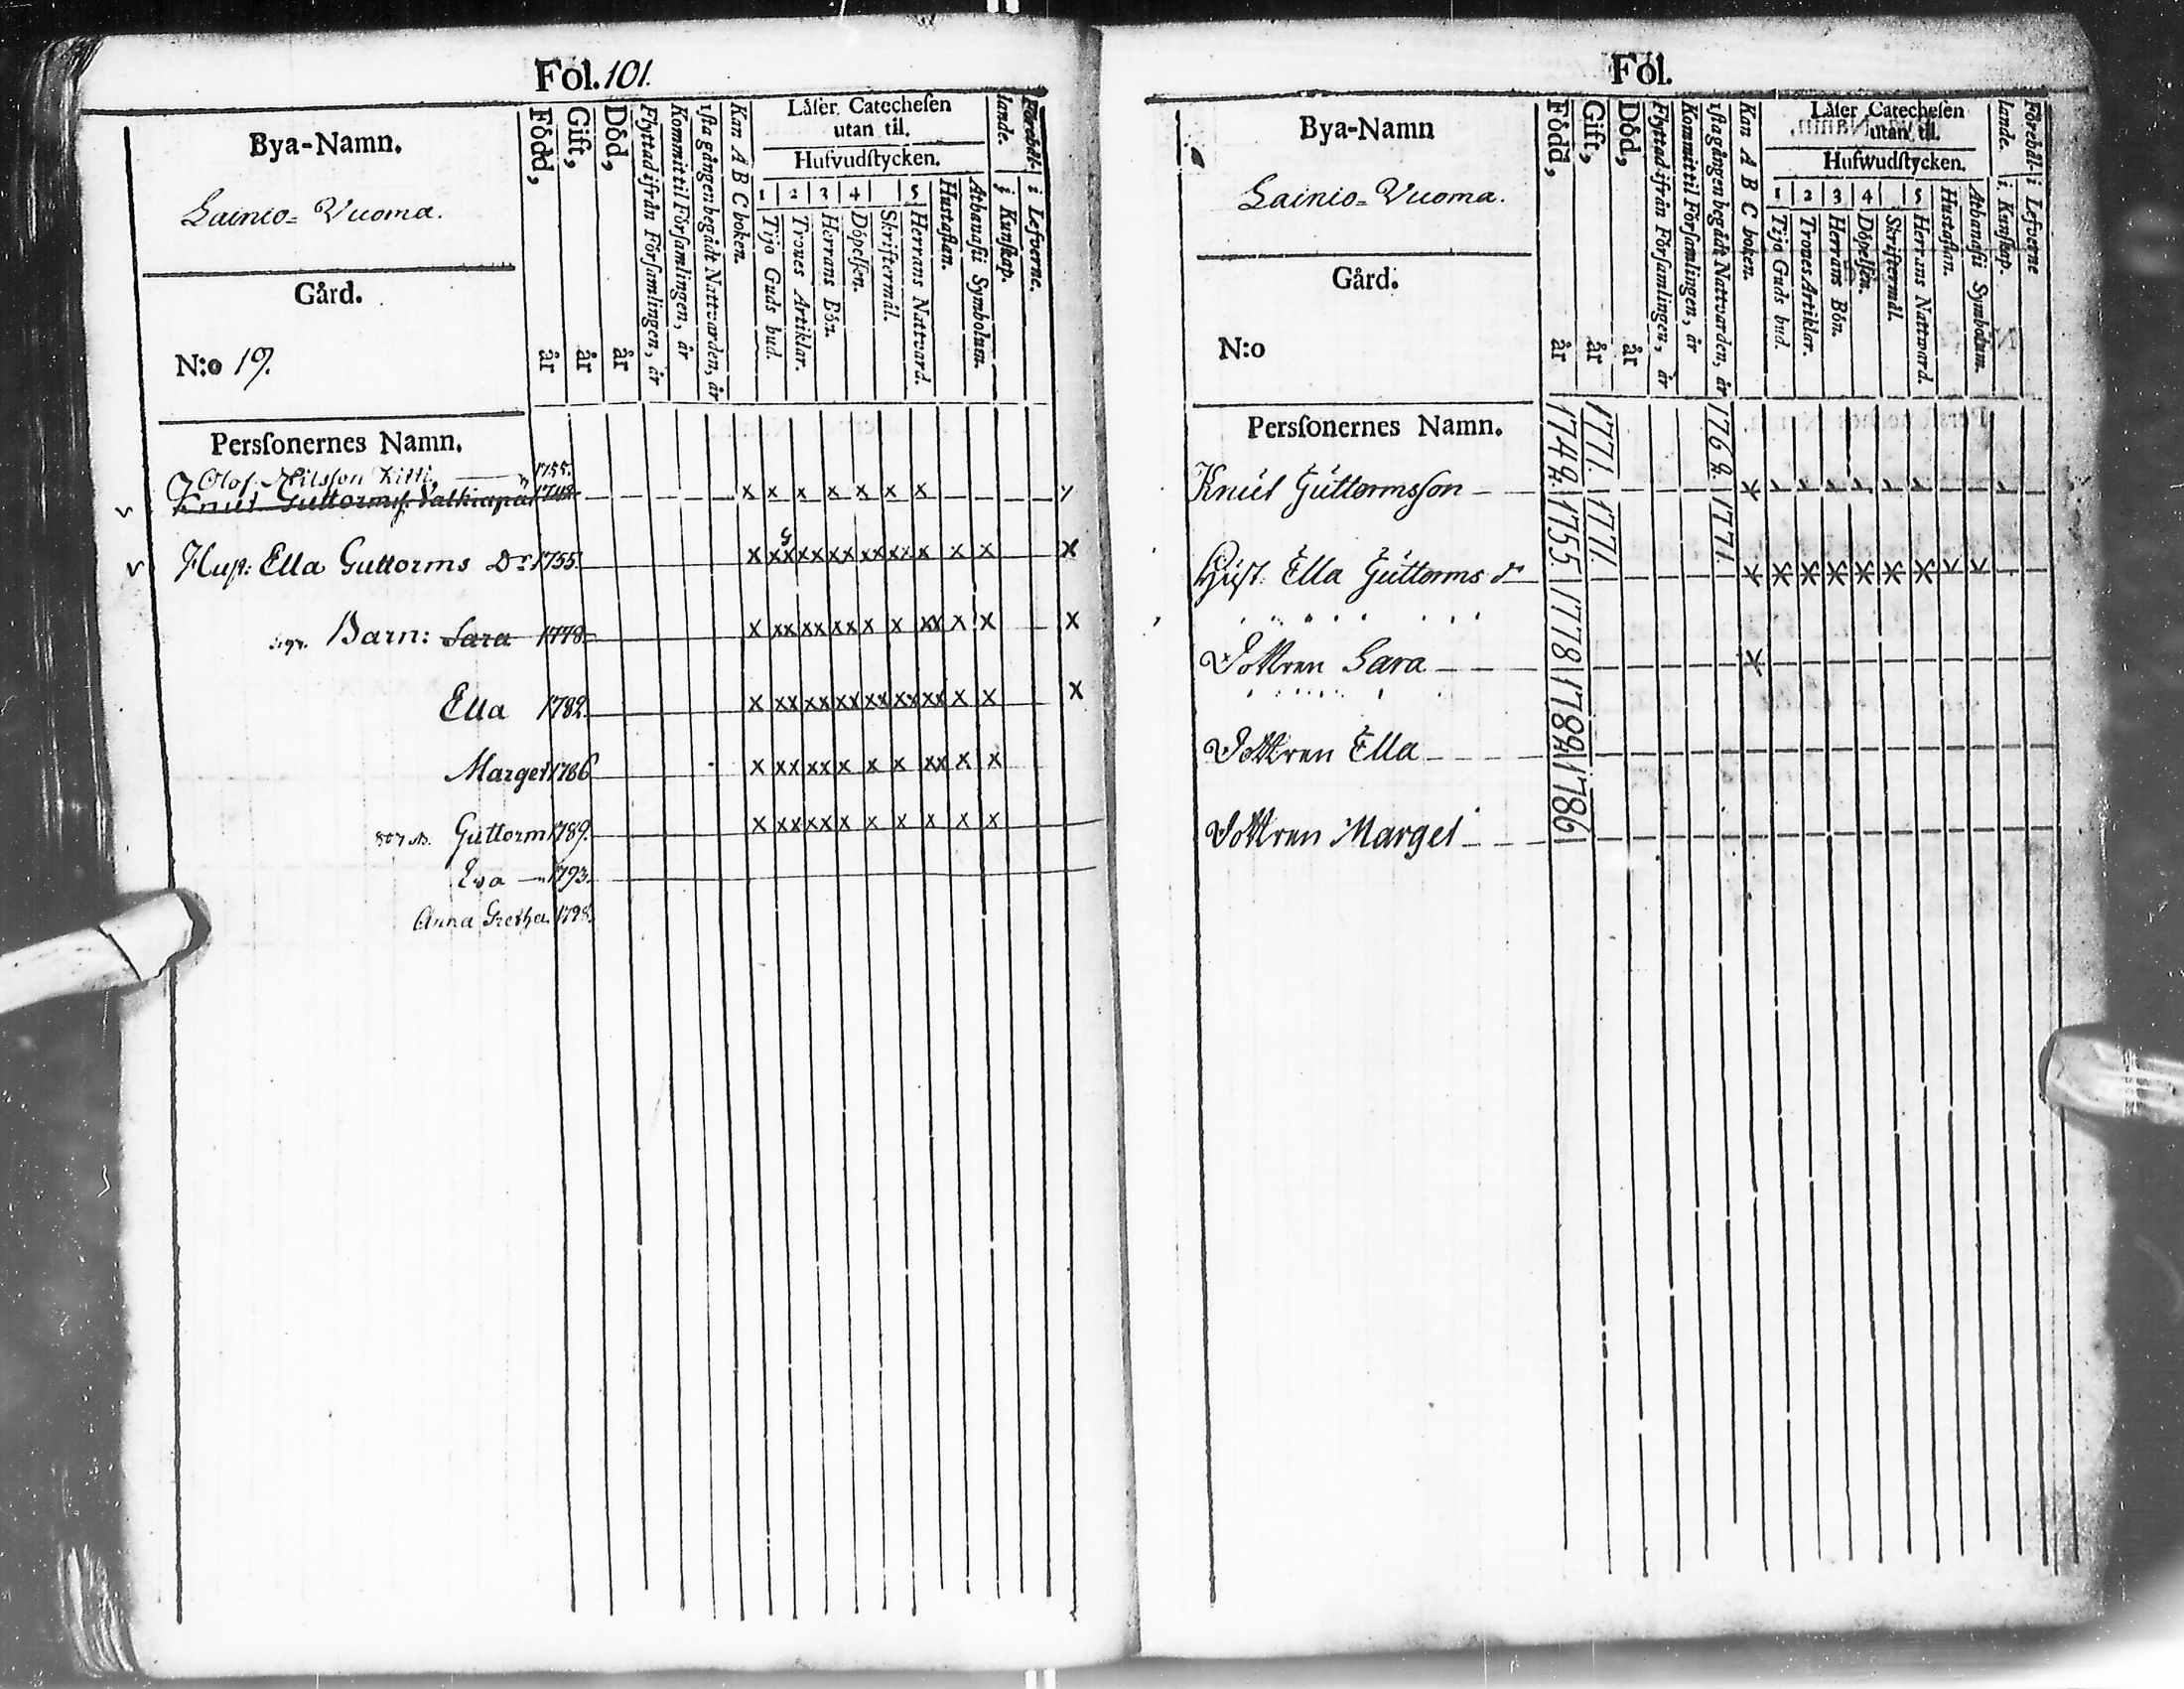 Fol. 101.
Bya-Namn.
Lainio= Vuoma.
Gård.
N:o 19.
Persſonernes Namn.
Född, år
Gift, år
Död, år
Flyttad ifrån Förſamlingen, år
Kommit til Förſamlingen, år
1ſta gången begådt Nattvarden, år
Kan A B C boken.
Läſer Catecheſen
utan til.
Hufvudſtycken.
1 2 3 4 5
Tijo Guds bud.
Trones Artiklar.
Herrans Bön.
Döpelſen.
Skriftermål.
Herrans Nattvard.
Huſtaflan.
Athanaſii Symbolum.
Förehål-
lande.
i Kunſkap.
i Lefverne.
Olof Nilsson Kitti, 1755.
Knut Guttormſ. Valkiapää 1742 x x x x x x x
Huſt: Ella Guttorms Dr 1755. x xx xx xx xx xx x x x x
Barn: Sara 1778 x xx xx xx x x xx x x x
Ella 1782 x xx xx xx xx xx xx x x x
Marget 1786 x xx xx x x x xx x x
Guttorm 1789. x xx xx x x x x x x
Eva 1793.
Anna Gretha 1798.
Fol.
Bya-Namn
Lainio= Vuoma.
Gård.
N:o
Persſonernes Namn.
Född, år
Gift, år
Död, år
Flyttad ifrån Förſamlingen, år
Kommit til Förſamlingen, år
1ſta gången begådt Nattvarden, år
Kan A B C boken.
Läſer Catecheſen
utan til.
Hufwudſtycken.
1 2 3 4 5
Tijo Guds bud.
Trones Artiklar.
Herrans Bön.
Döpelſen.
Skriftermål.
Herrans Nattward.
Huſtaflan.
Athanaſii Symbolum.
Förehål-
lande.
i Kunſkap.
i Lefverne
Knut Guttormsſon 1742. 1771. 1762. x
Huſt. Ella Guttorms dr 1755. 1771. 1771. x x x x x x x x x
Dottren Sara 1778 x
Dottren Ella 1782
Dottren Marget 1786